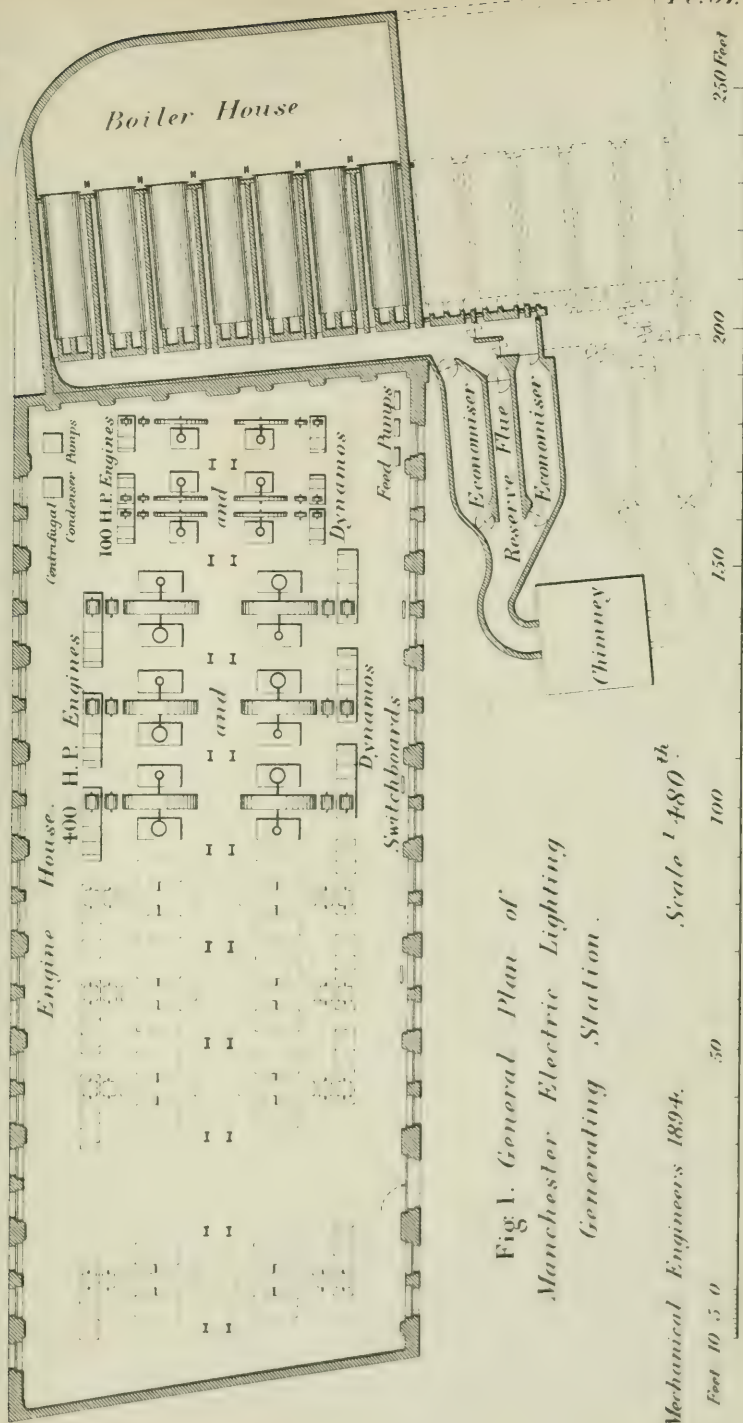 Boiler House
Centrifugal
Condenser Pumps
100 H.P. Engines
and
Dynamos
Feed Pumps
Engine House.
400 H.P. Engines
and
Dynamos
Switchboards
Economiser
Reserve Flue
Economiser
Chimney
Fig 1. General Plan of
Manchester Electric Lighting
Generating Station.
Mechanical Engineers 1894.
Scale 1/480th
Feet 10 5 0 50 100 150 200 250 Feet